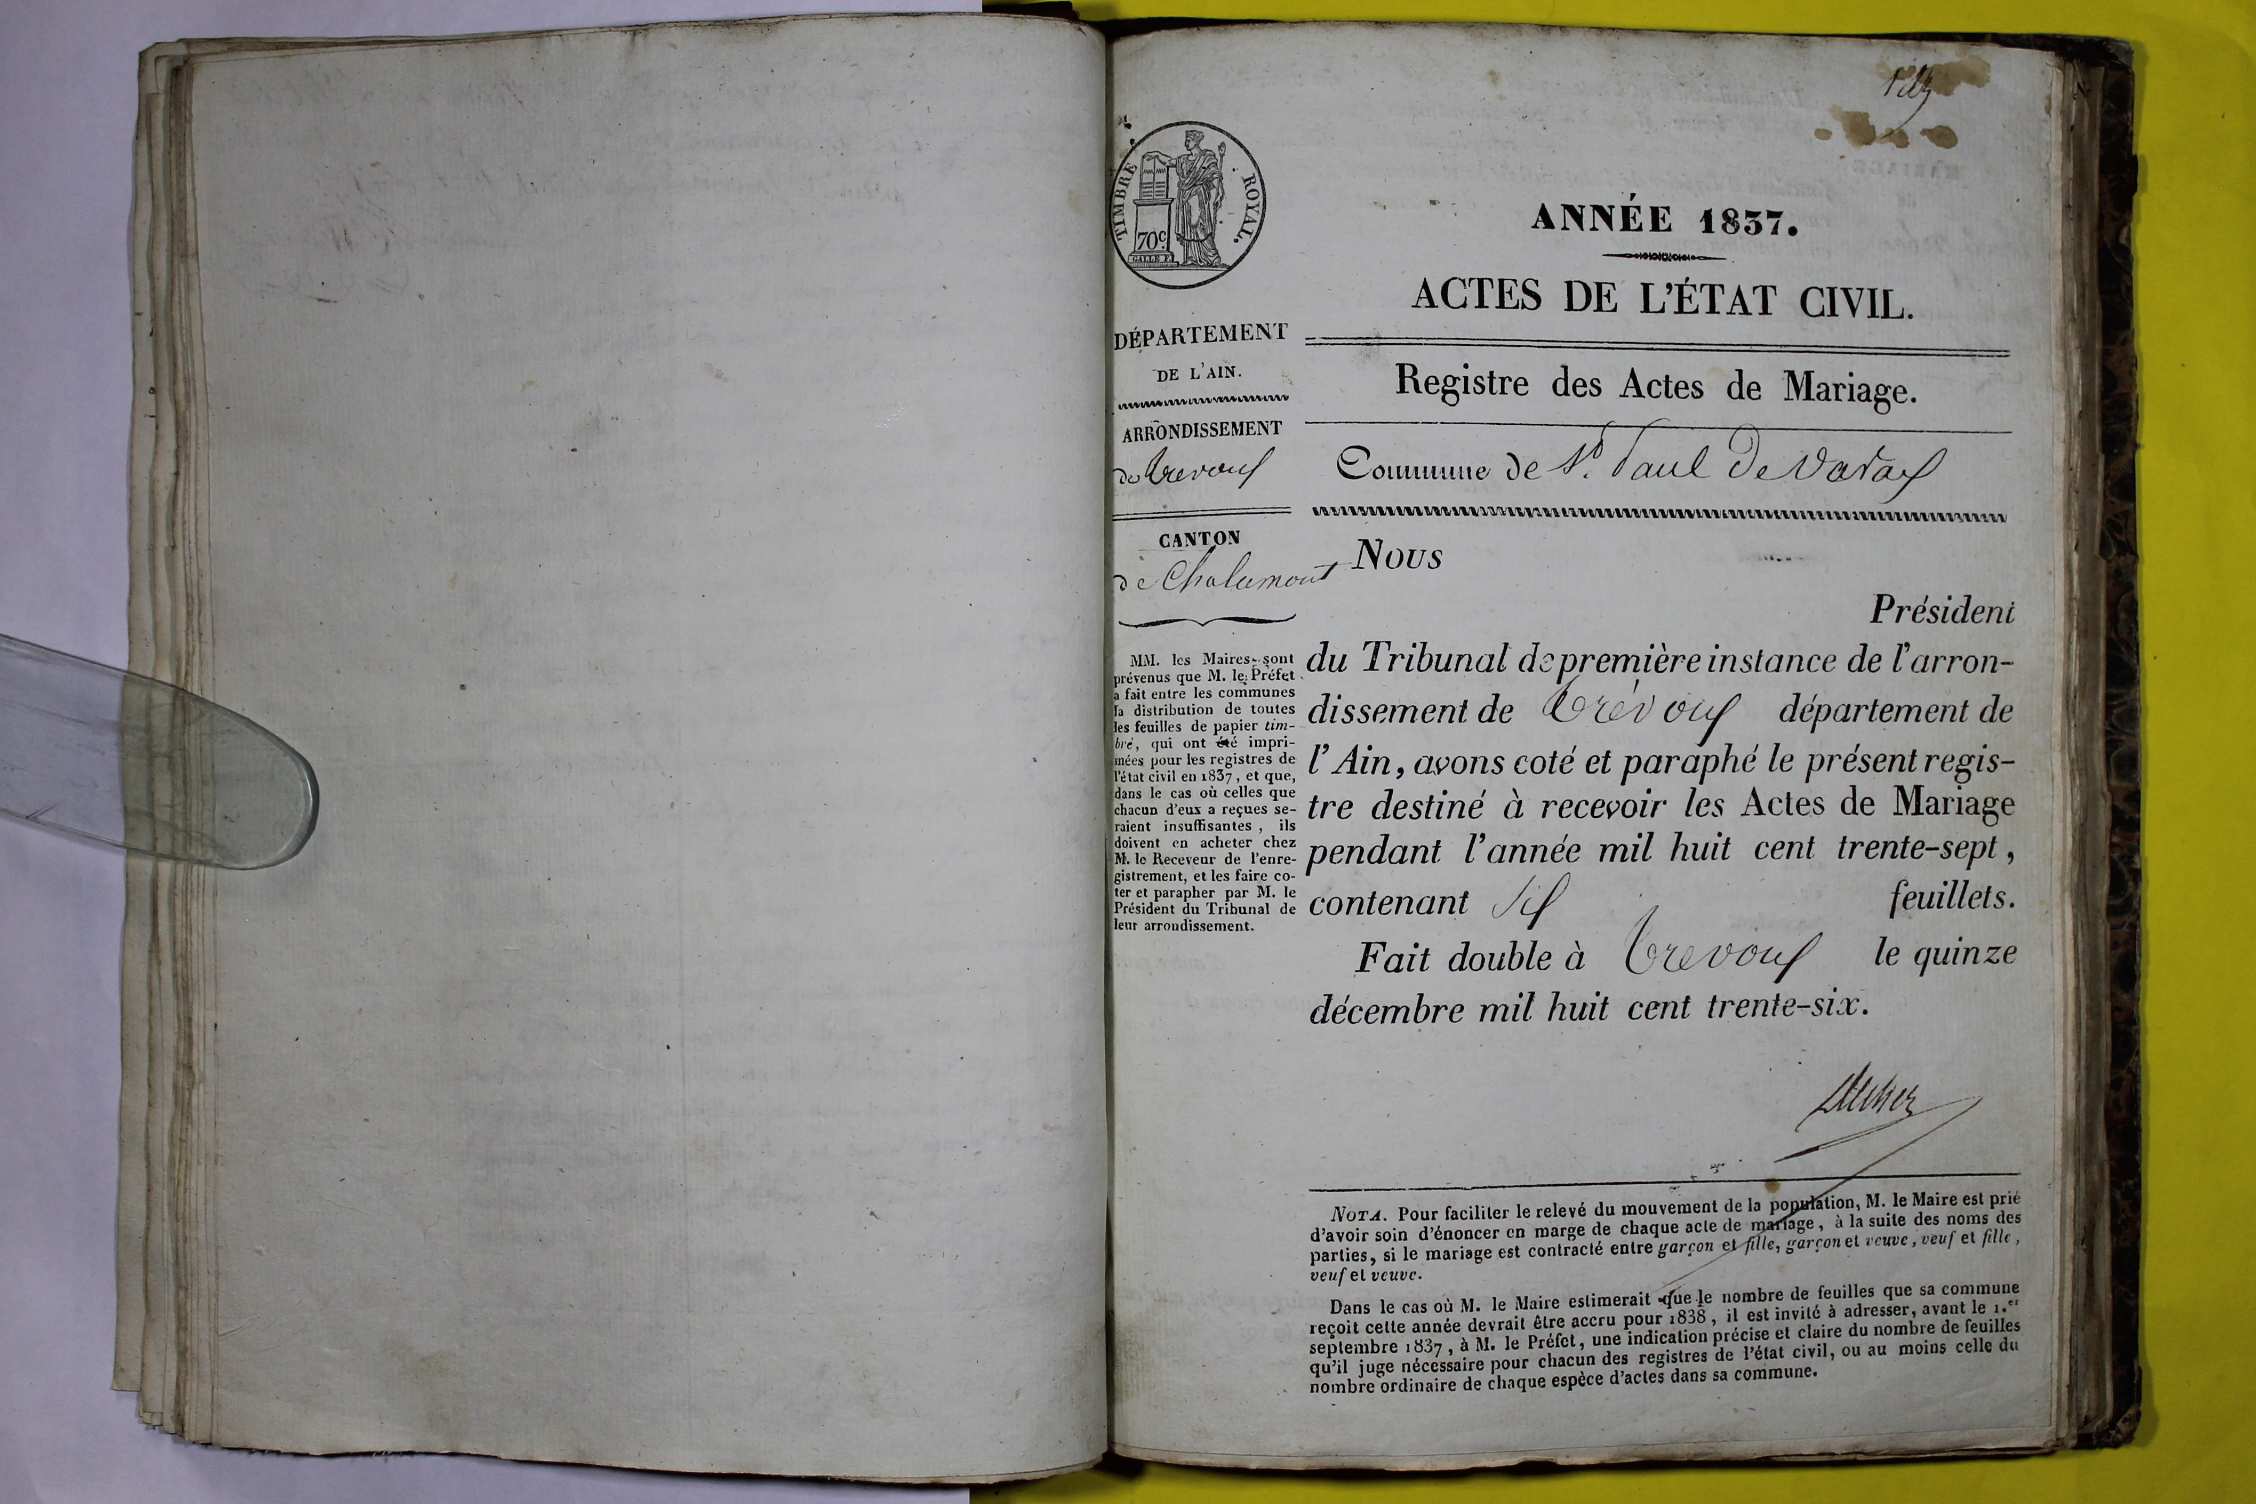 TIMBRE ROYAL.
70c.
ANNÉE 1837.
ACTES DE L'ÉTAT CIVIL.
DÉPARTEMENT
DE L'AIN.
ARRONDISSEMENT
de Trevoux
CANTON
de Chalamont
MM. les Maires sont
prévenus que M. le Préfet
a fait entre les communes
la distribution de toutes
les feuilles de papier tim-
bré, qui ont été impri-
mées pour les registres de
l'état civil en 1837, et que,
dans le cas où celles que
chacun d'eux a reçues se-
raient insuffisantes, ils
doivent en acheter chez
M. le Receveur de l'enre-
gistrement, et les faire co-
ter et parapher par M. le
Président du Tribunal de
leur arrondissement.
Registre des Actes de Mariage.
Commune de St. Paul De Varax
Nous
Président
du Tribunal de première instance de l'arron-
dissement de Trévoux département de
l'Ain, avons coté et paraphé le présent regis-
tre destiné à recevoir les Actes de Mariage
pendant l'année mil huit cent trente-sept,
contenant six feuillets.
Fait double à Trevoux le quinze
décembre mil huit cent trente-six.
NOTA. Pour faciliter le relevé du mouvement de la population, M. le Maire est prié
d'avoir soin d'énoncer en marge de chaque acte de mariage, à la suite des noms des
parties, si le mariage est contracté entre garçon et fille, garçon et veuve, veuf et fille,
veuf et veuve.
Dans le cas où M. le Maire estimerait que le nombre de feuilles que sa commune
reçoit cette année devrait être accru pour 1838, il est invité à adresser, avant le 1.er
septembre 1837, à M. le Préfet, une indication précise et claire du nombre de feuilles
qu'il juge nécessaire pour chacun des registres de l'état civil, ou au moins celle du
nombre ordinaire de chaque espèce d'actes dans sa commune.